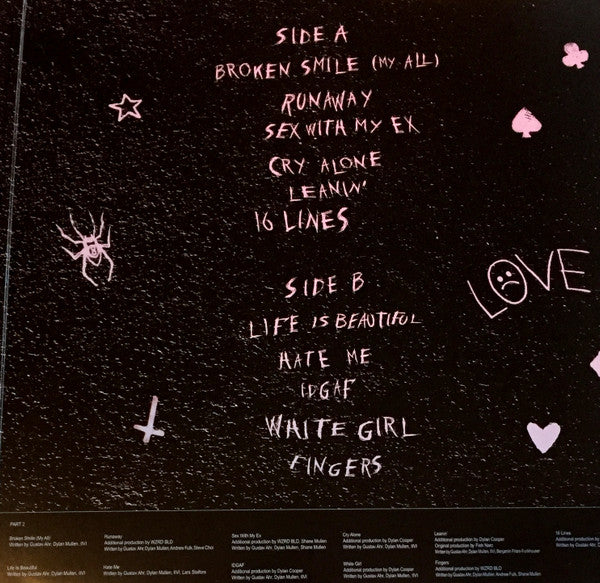 SIDE A
BROKEN SMILE (MY ALL)
RUNAWAY
SEX WITH MY EX
CRY ALONE
LEANIN'
16 LINES
LOVE
SIDE B
LIFE IS BEAUTIFUL
HATE ME
IDGAF
WHITE GIRL
FINGERS
PART 2
Broken Smile (My All)
Written by Gustav Ahr, Dylan Mullen, IIVI
Runaway
Additional production by WZRD BLD
Written by Gustav Ahr, Dylan Mullen, Andrew Fulk, Steve Choi
Sex With My Ex
Additional production by WZRD BLD, Shane Mullen
Written by Gustav Ahr, Dylan Mullen, Shane Mullen
Cry Alone
Additional production by Dylan Cooper
Written by Gustav Ahr, Dylan Mullen, IIVI
Leanin'
Additional production by Dylan Cooper
Original production by Fish Narc
Written by Gustav Ahr, Dylan Mullen, IIVI, Benjamin Friars-Funkhouser
16 Lines
Additional
Written by Gustav Ahr,
Life Is Beautiful
Written by Gustav Ahr, Dylan Mullen, IIVI
Hate Me
Written by Gustav Ahr, Dylan Mullen, IIVI, Lars Stalfors
IDGAF
Additional production by Dylan Cooper
Written by Gustav Ahr, Dylan Mullen, IIVI
White Girl
Additional production by Dylan Cooper
Written by Gustav Ahr, Dylan Mullen, IIVI
Fingers
Additional production by WZRD BLD
Written by Gustav Ahr, Dylan Mullen, Andrew Fulk